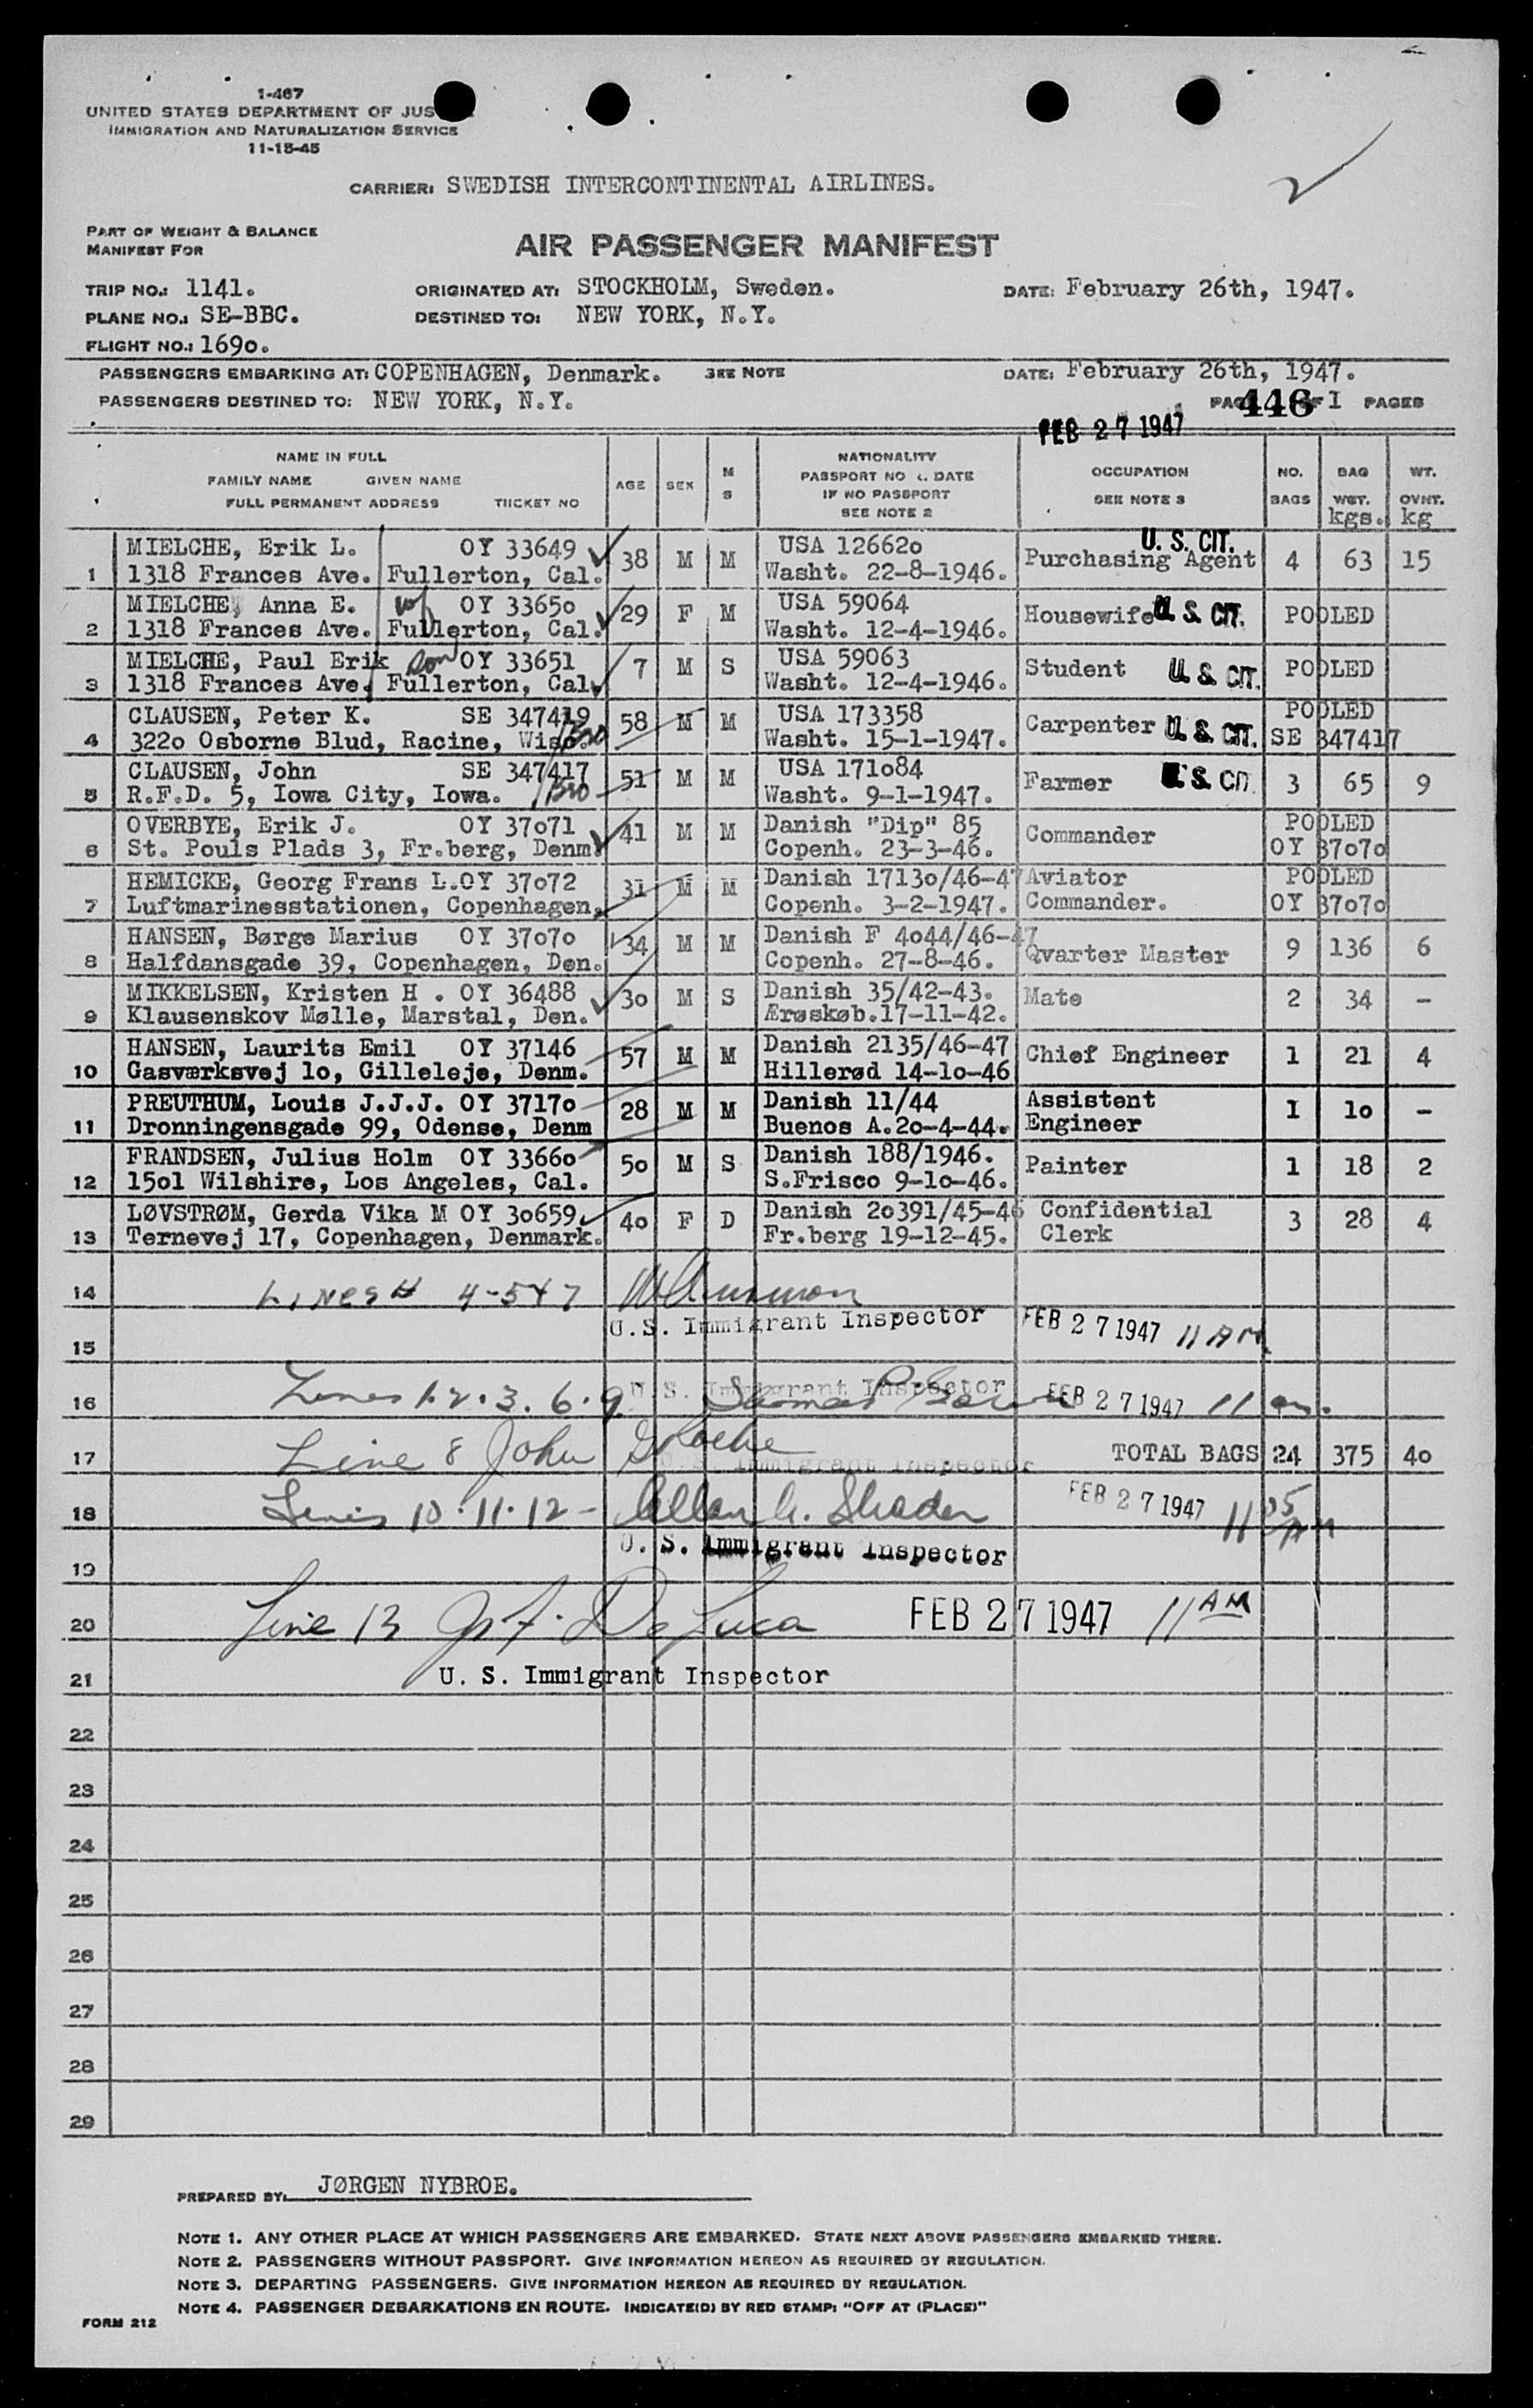 1-467
UNITED STATES DEPARTMENT OF JUS
IMMIGRATION AND NATURALIZATION SERVICE
11-15-45
CARRIER: SWEDISH INTERCONTINENTAL AIRLINES.
PART OF WEIGHT & BALANCE
MANIFEST FOR
AIR PASSENGER MANIFEST
TRIP NO.: 1141. ORIGINATED AT: STOCKHOLM, Sweden. DATE: February 26th, 1947.
PLANE NO.: SE-BBC. DESTINED TO: NEW YORK, N.Y.
FLIGHT NO.: 169o.
PASSENGERS EMBARKING AT: COPENHAGEN, Denmark. SEE NOTE DATE: February 26th, 1947.
PASSENGERS DESTINED TO: NEW YORK, N.Y. PAG 446 F I PAGES
FEB 27 1947
NAME IN FULL
FAMILY NAME GIVEN NAME
FULL PERMANENT ADDRESS TIICKET NO
AGE SEX M S
NATIONALITY
PASSPORT NO & DATE
IF NO PASSPORT
SEE NOTE 2
OCCUPATION
SEE NOTE 3
NO. BAGS
BAG WGT. kgs.
WT. OVNT. kg
1 MIELCHE, Erik L. OY 33649 38 M M USA 12662o Purchasing Agent U. S. CIT. 4 63 15
1318 Frances Ave. Fullerton, Cal. Washt. 22-8-1946.
2 MIELCHE, Anna E. wf OY 3365o 29 F M USA 59064 Housewife U. S. CIT. POOLED
1318 Frances Ave. Fullerton, Cal. Washt. 12-4-1946.
3 MIELCHE, Paul Erik son OY 33651 7 M S USA 59063 Student U. S. CIT. POOLED
1318 Frances Ave. Fullerton, Cal. Washt. 12-4-1946.
4 CLAUSEN, Peter K. SE 347419 58 M M USA 173358 Carpenter U. S. CIT. POOLED
322o Osborne Blud, Racine, Wisc. Bro Washt. 15-1-1947. SE 347417
5 CLAUSEN, John SE 347417 51 M M USA 171o84 Farmer U. S. CIT. 3 65 9
R.F.D. 5, Iowa City, Iowa. Bro Washt. 9-1-1947.
6 OVERBYE, Erik J. OY 37o71 41 M M Danish "Dip" 85 Commander POOLED
St. Pouls Plads 3, Fr.berg, Denm. Copenh. 23-3-46. OY 37o7o
7 HEMICKE, Georg Frans L.OY 37o72 31 M M Danish 1713o/46-47 Aviator POOLED
Luftmarinesstationen, Copenhagen, Copenh. 3-2-1947. Commander. OY 37o7o
8 HANSEN, Børge Marius OY 37o7o 34 M M Danish F 4o44/46-47 Qvarter Master 9 136 6
Halfdansgade 39, Copenhagen, Den. Copenh. 27-8-46.
9 MIKKELSEN, Kristen H . OY 36488 3o M S Danish 35/42-43. Mate 2 34 -
Klausenskov Mølle, Marstal, Den. Ærøskøb.17-11-42.
10 HANSEN, Laurits Emil OY 37146 57 M M Danish 2135/46-47 Chief Engineer 1 21 4
Gasværksvej 1o, Gilleleje, Denm. Hillerød 14-1o-46
11 PREUTHUM, Louis J.J.J. OY 3717o 28 M M Danish 11/44 Assistent I 1o -
Dronningensgade 99, Odense, Denm Buenos A.2o-4-44. Engineer
12 FRANDSEN, Julius Holm OY 3366o 5o M S Danish 188/1946. Painter 1 18 2
15o1 Wilshire, Los Angeles, Cal. S.Frisco 9-1o-46.
13 LØVSTRØM, Gerda Vika M OY 3o659 4o F D Danish 2o391/45-46 Confidential 3 28 4
Ternevej 17, Copenhagen, Denmark. Fr.berg 19-12-45. Clerk
14 LINES 4-5 & 7
15 U.S. Immigrant Inspector FEB 27 1947 11 AM.
16 Lines 1.2.3.6.9 U. S. Immigrant Inspector FEB 27 1947 11 am.
17 Line 8 John Roche TOTAL BAGS 24 375 4o
U. S. Immigrant Inspector
18 Lines 10.11.12 - Allan G. Shader FEB 27 1947 11 05 AM
19 U. S. Immigrant Inspector
20 Line 13 De Luca FEB 27 1947 11 AM
21 U. S. Immigrant Inspector
22
23
24
25
26
27
28
29
PREPARED BY: JØRGEN NYBROE.
NOTE 1. ANY OTHER PLACE AT WHICH PASSENGERS ARE EMBARKED. STATE NEXT ABOVE PASSENGERS EMBARKED THERE.
NOTE 2. PASSENGERS WITHOUT PASSPORT. GIVE INFORMATION HEREON AS REQUIRED BY REGULATION.
NOTE 3. DEPARTING PASSENGERS. GIVE INFORMATION HEREON AS REQUIRED BY REGULATION.
NOTE 4. PASSENGER DEBARKATIONS EN ROUTE. INDICATE(D) BY RED STAMP: "OFF AT (PLACE)"
FORM 212